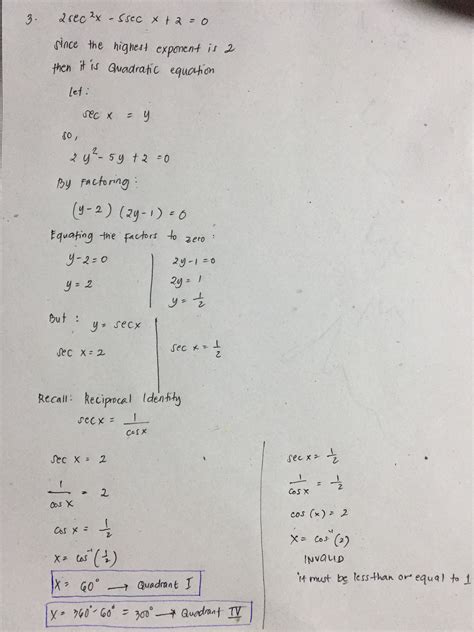 3. 2sec²x - 5sec x + 2 = 0
since the highest exponent is 2
then it is Quadratic equation
let:
sec x = y
so,
2y² - 5y + 2 = 0
By Factoring:
(y-2) (2y-1) = 0
Equating the factors to zero:
y-2=0 | 2y-1=0
y = 2 | 2y = 1
y = 1/2
But: y = secx
sec x = 2 | sec x = 1/2
Recall: Reciprocal Identity
secx = 1/cosx
sec x = 2
1/cosx = 2
cos x = 1/2
x = cos⁻¹(1/2)
x = 60° → Quadrant I
x = 360°-60° = 300° → Quadrant IV
sec x = 1/2
1/cosx = 1/2
cos (x) = 2
x = cos⁻¹(2)
INVALID
it must be less than or equal to 1